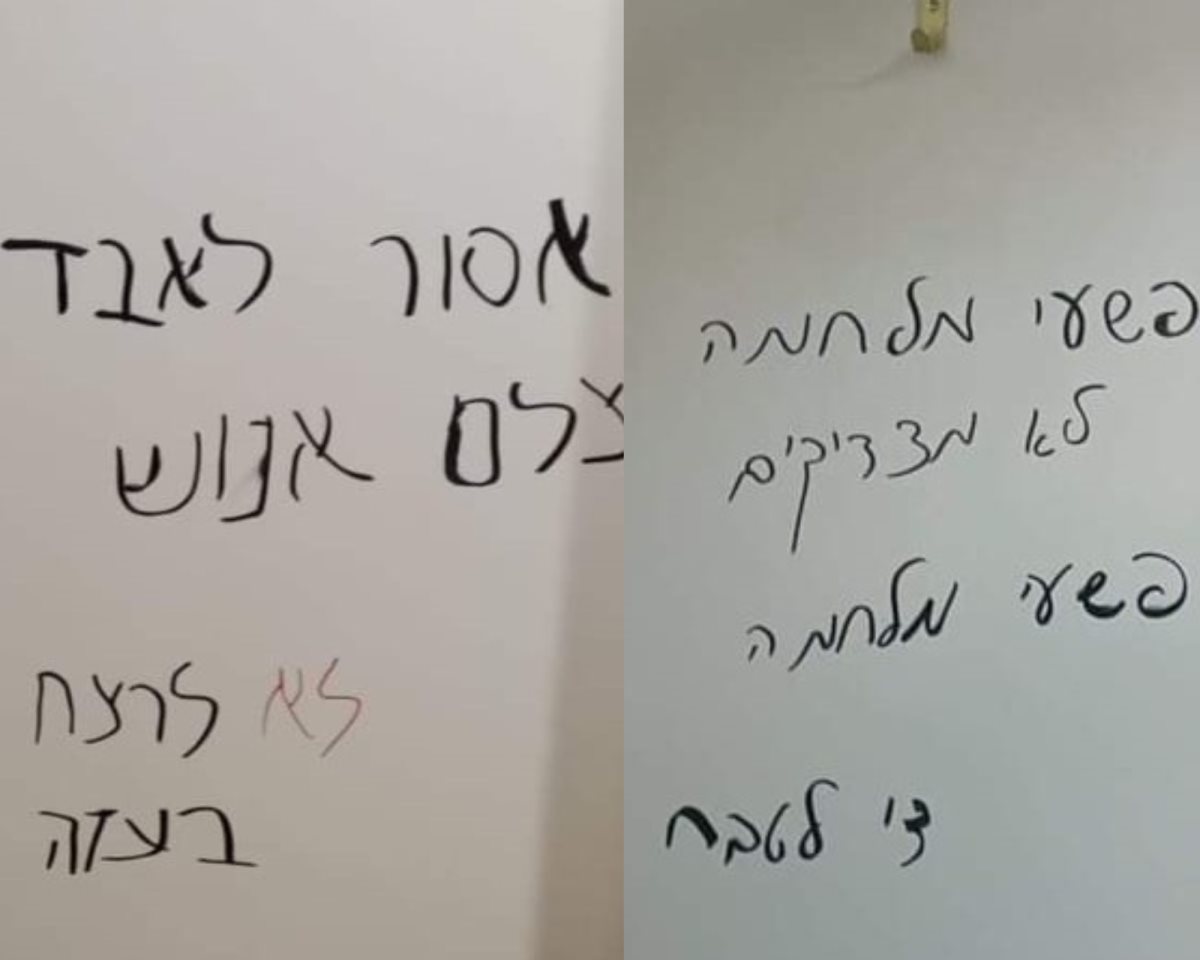 אסור לאבד
צלם אנוש
לא לרצח
בעזה
פשעי מלחמה
לא מצדיקים
פשעי מלחמה
די לטבח